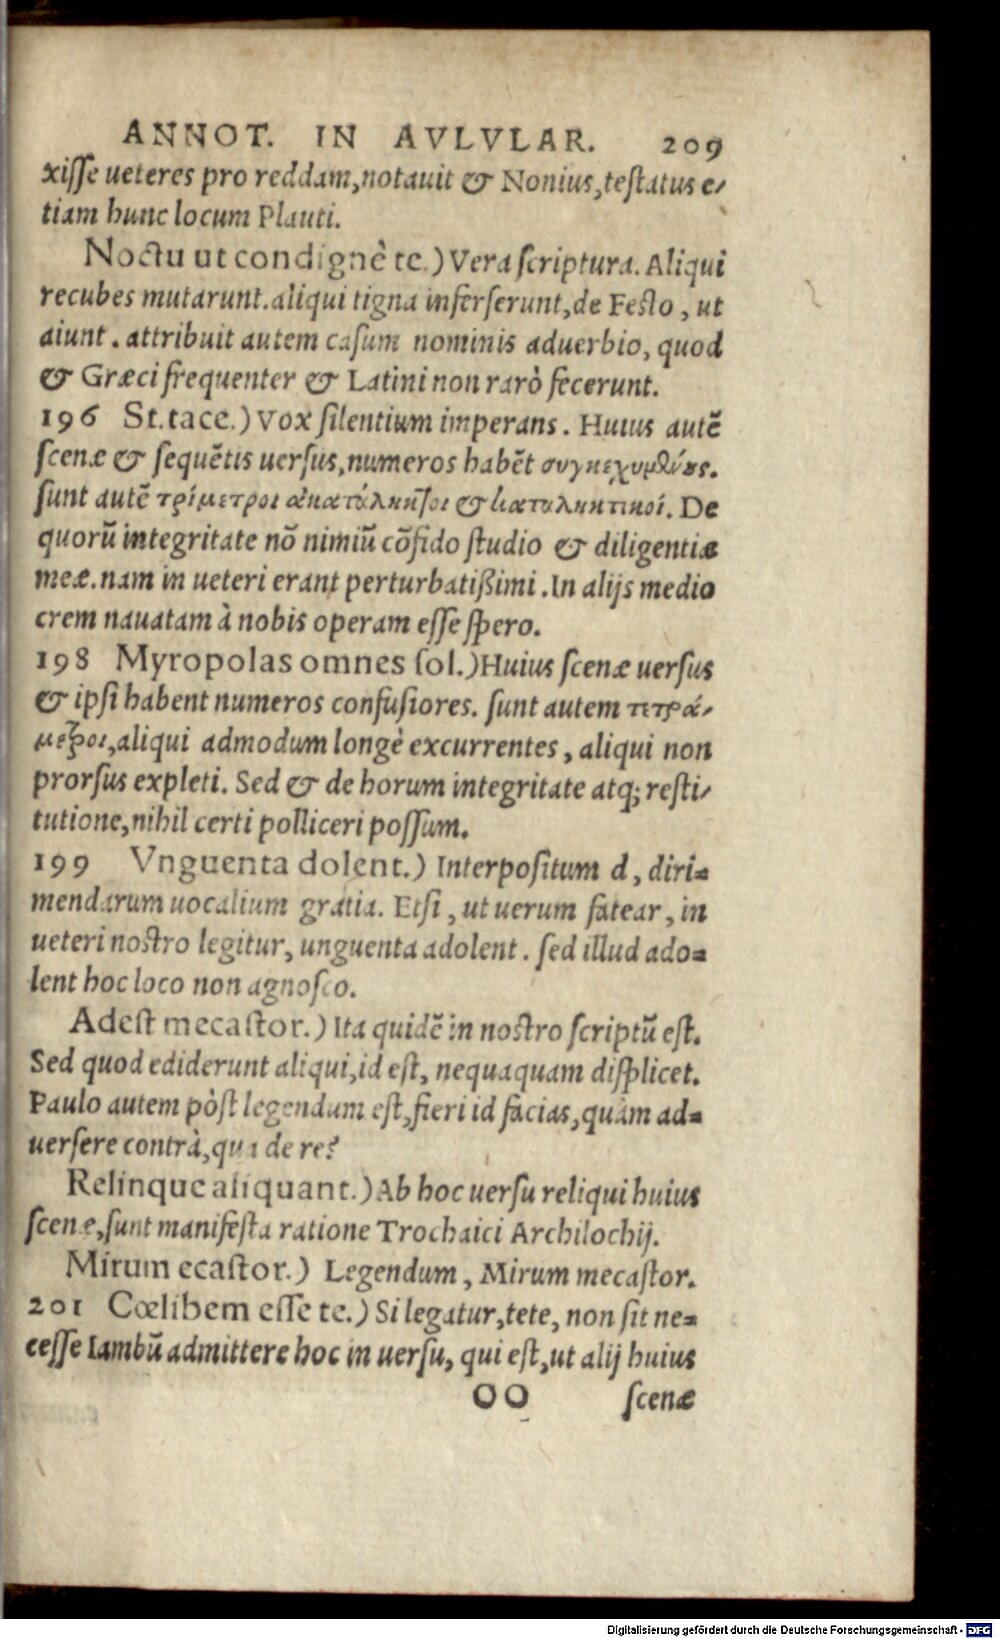 ANNOT. IN AVLVLAR. 209
xiſſe ueteres pro reddam, notauit & Nonius, teſtatus e-
tiam hunc locum Plauti.
Noctu ut condignè te.) Vera ſcriptura. Aliqui
recubes mutarunt. aliqui tigna inſerſerunt, de Feſto, ut
aiunt. attribuit autem caſum nominis aduerbio, quod
& Græci frequenter & Latini non rarò fecerunt.
196 St. tace.) Vox ſilentium imperans. Huius autẽ
ſcenæ & ſequẽtis uerſus, numeros habẽt συγκεχυμένους.
ſunt autẽ τρίμετροι ἀκατάληκτοι & καταληκτικοί. De
quorũ integritate nõ nimiũ cõfido ſtudio & diligentiæ
meæ. nam in ueteri erant perturbatißimi. In alijs medio
crem nauatam à nobis operam eſſe ſpero.
198 Myropolas omnes ſol.) Huius ſcenæ uerſus
& ipſi habent numeros confuſiores. ſunt autem τετρά-
μετροι, aliqui admodum longè excurrentes, aliqui non
prorſus expleti. Sed & de horum integritate atq; reſti-
tutione, nihil certi polliceri poſſum.
199 Vnguenta dolent.) Interpoſitum d, diri-
mendarum uocalium gratia. Etſi, ut uerum fatear, in
ueteri noſtro legitur, unguenta adolent. ſed illud ado-
lent hoc loco non agnoſco.
Adeſt mecaſtor.) Ita quidẽ in noſtro ſcriptũ eſt.
Sed quod ediderunt aliqui, id eſt, nequaquam diſplicet.
Paulo autem pòſt legendum eſt, fieri id facias, quàm ad-
uerſere contrà, qua de re?
Relinque aliquant.) Ab hoc uerſu reliqui huius
ſcenæ, ſunt manifeſta ratione Trochaici Archilochij.
Mirum ecaſtor.) Legendum, Mirum mecaſtor.
201 Cœlibem eſſe te.) Si legatur, tete, non ſit ne-
ceſſe Iambũ admittere hoc in uerſu, qui eſt, ut alij huius
OO ſcenæ
Digitalisierung gefördert durch die Deutsche Forschungsgemeinschaft - DFG